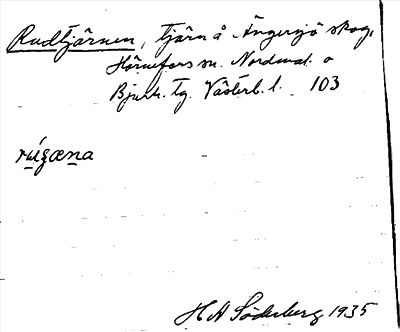 Rudtjärnen, tjärn å Ängersjö skog,
Hörnefors sn. Nordmal. o
Bjurh. tg. Västerb. l. 103
H A Söderberg 1935